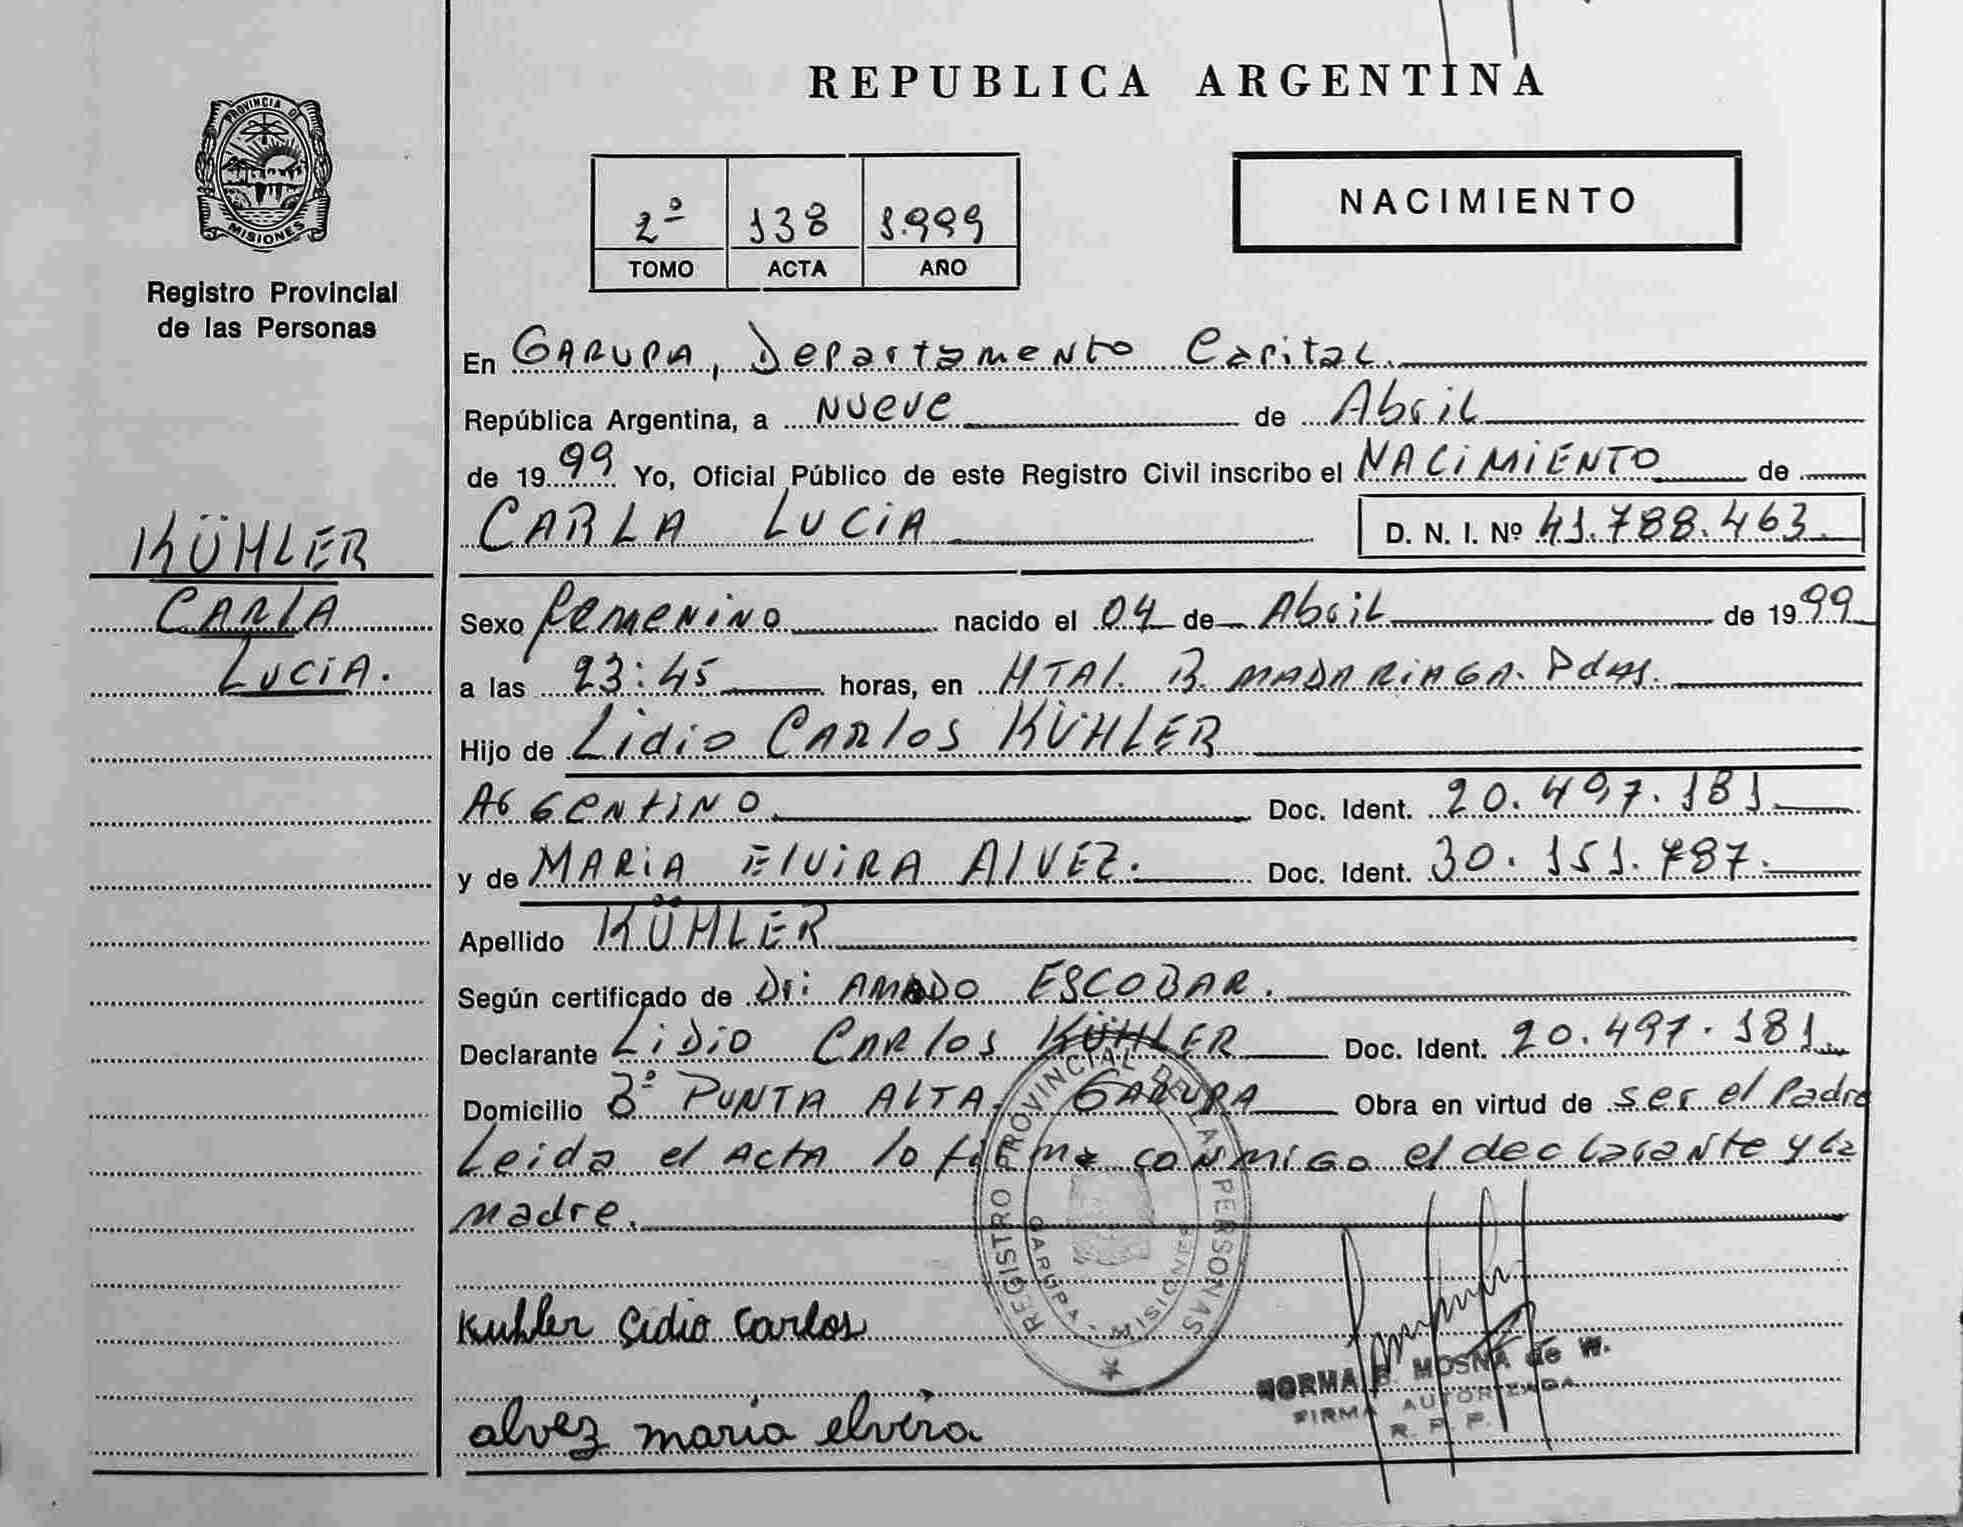 REPUBLICA ARGENTINA
PROVINCIA DE
MISIONES
Registro Provincial
de las Personas
2º 138 1.999
TOMO ACTA AÑO
NACIMIENTO
En GARUPA, Departamento Capital.
República Argentina, a NUEVE de Abril
de 1999 Yo, Oficial Público de este Registro Civil inscribo el NACIMIENTO de
CARLA LUCIA D. N. I. Nº 41.788.463.
KÜHLER
CARLA
LUCIA.
Sexo femenino nacido el 04 de Abril de 1999
a las 23:45 horas, en HTAl. R. MADARIAGA. Pdas.
Hijo de Lidio CARlos KÜHLER
Argentino Doc. Ident. 20.497.181
y de MARIA ElVIRA AlVEZ. Doc. Ident. 30.151.787.
Apellido KÜHLER
Según certificado de Dr: AMADO ESCOBAR.
Declarante LiDio CARlos KÜHLER Doc. Ident. 20.497.181
Domicilio Bº PUNTA ALTA. GARUPA Obra en virtud de ser el Padre
Leida el ACtA lo firma conmigo el declarante y la
madre.
REGISTRO PROVINCIAL DE LAS PERSONAS
GARUPA - MISIONES
Kuhler Lidio Carlos
NORMA B. MOSNA de W.
FIRMA AUTORIZADA
R. P. P.
alvez maria elvira